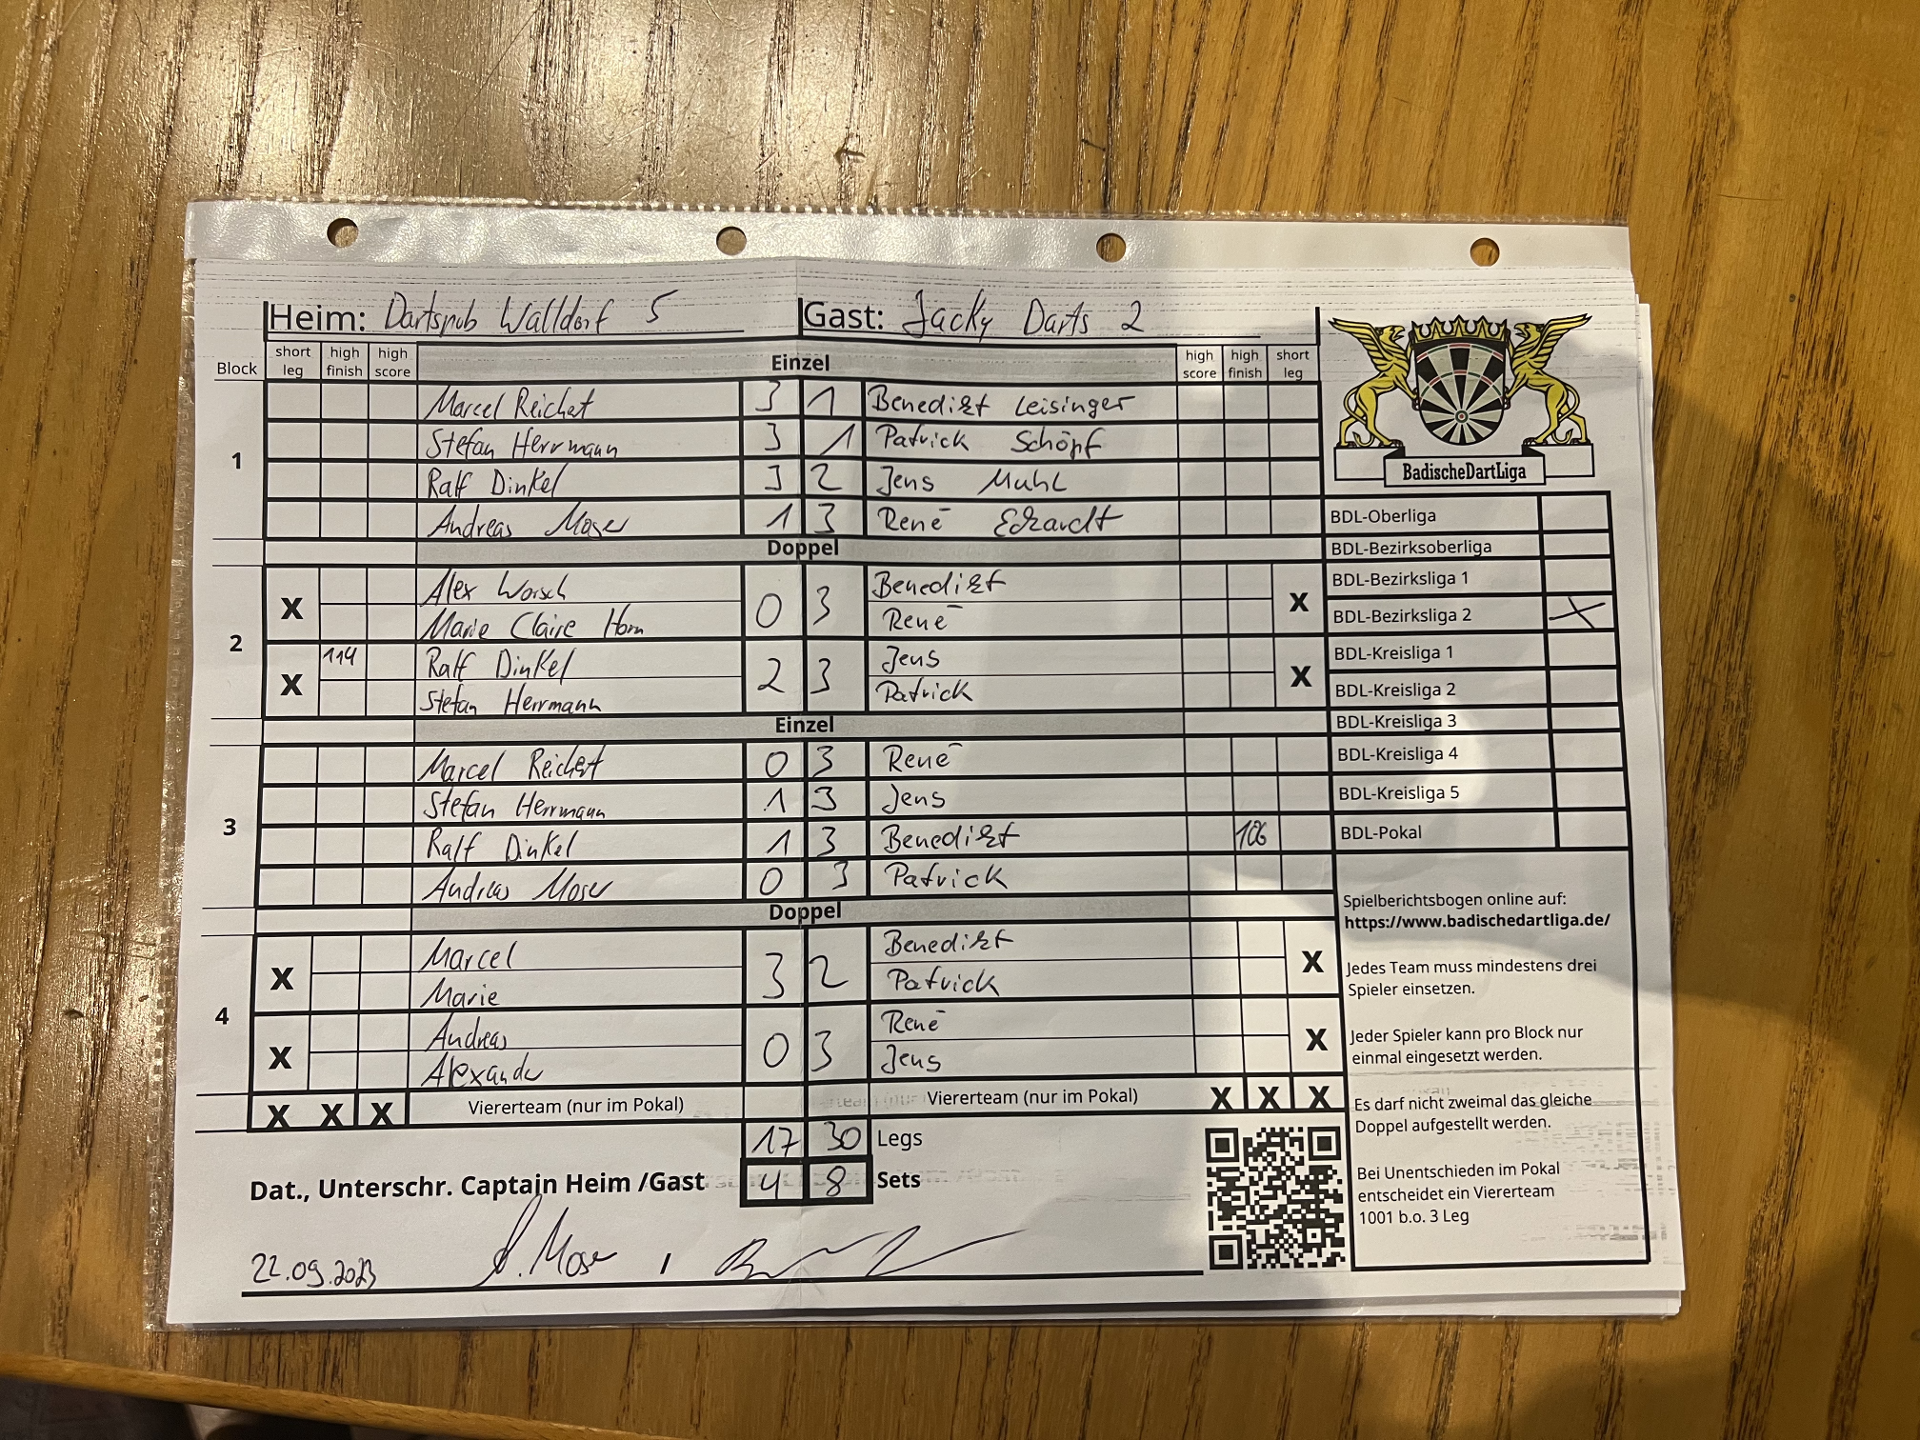 Heim: Dartspub Walldorf 5 Gast: Jacky Darts 2
Block short leg high finish high score Einzel high score high finish short leg
1
Marcel Reichert 3 1 Benedikt Leisinger
Stefan Herrmann 3 1 Patrick Schöpf
Ralf Dinkel 3 2 Jens Muhl
Andreas Moser 1 3 René Eckardt
Doppel
2
X Alex Worsch 0 3 Benedikt X
Marie Claire Horn René
X 114 Ralf Dinkel 2 3 Jens X
Stefan Herrmann Patrick
Einzel
3
Marcel Reichert 0 3 René
Stefan Herrmann 1 3 Jens
Ralf Dinkel 1 3 Benedikt 106
Andreas Moser 0 3 Patrick
Doppel
4
X Marcel 3 2 Benedikt X
Marie Patrick
X Andreas 0 3 René X
Alexander Jens
X X X Viererteam (nur im Pokal) Viererteam (nur im Pokal) X X X
17 30 Legs
Dat., Unterschr. Captain Heim /Gast 4 8 Sets
22.09.2023 A. Moser /
BadischeDartLiga
BDL-Oberliga
BDL-Bezirksoberliga
BDL-Bezirksliga 1
BDL-Bezirksliga 2 X
BDL-Kreisliga 1
BDL-Kreisliga 2
BDL-Kreisliga 3
BDL-Kreisliga 4
BDL-Kreisliga 5
BDL-Pokal
Spielberichtsbogen online auf:
https://www.badischedartliga.de/
Jedes Team muss mindestens drei
Spieler einsetzen.
Jeder Spieler kann pro Block nur
einmal eingesetzt werden.
Es darf nicht zweimal das gleiche
Doppel aufgestellt werden.
Bei Unentschieden im Pokal
entscheidet ein Viererteam
1001 b.o. 3 Leg